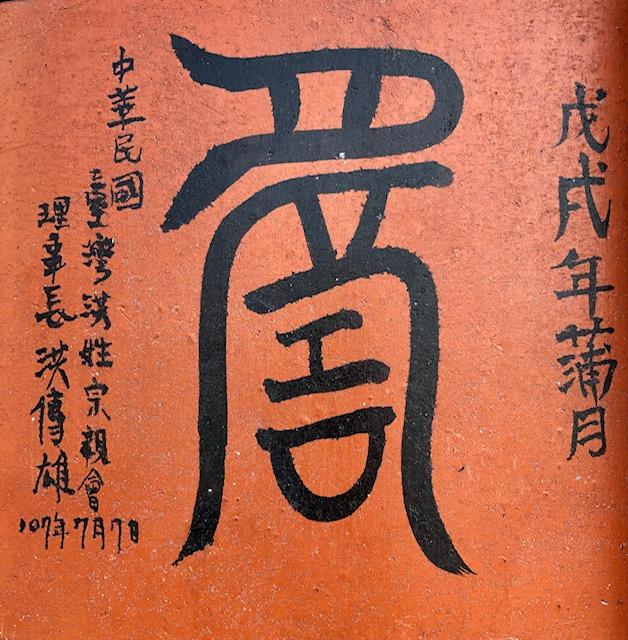 戊戌年蒲月
中華民國
臺灣洪姓宗親會
理事長洪傳雄
107年7月7日